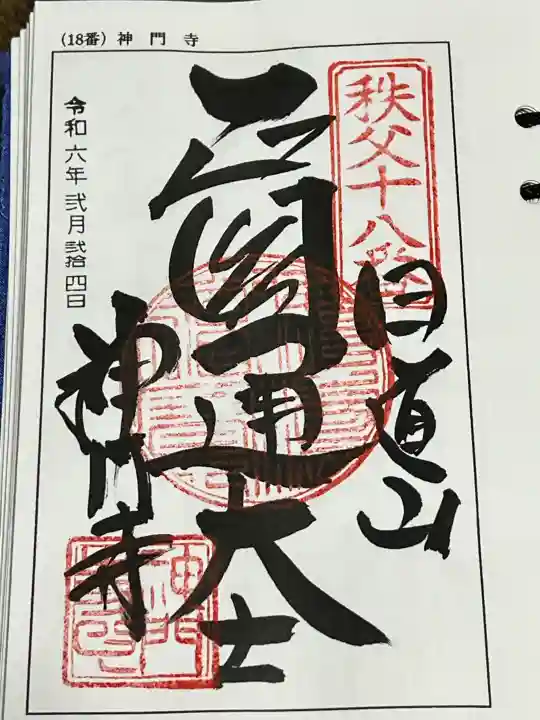 (18番) 神門寺
秩父十八番
白道山
正圓通大士
神門寺
令和六年弐月弐拾四日